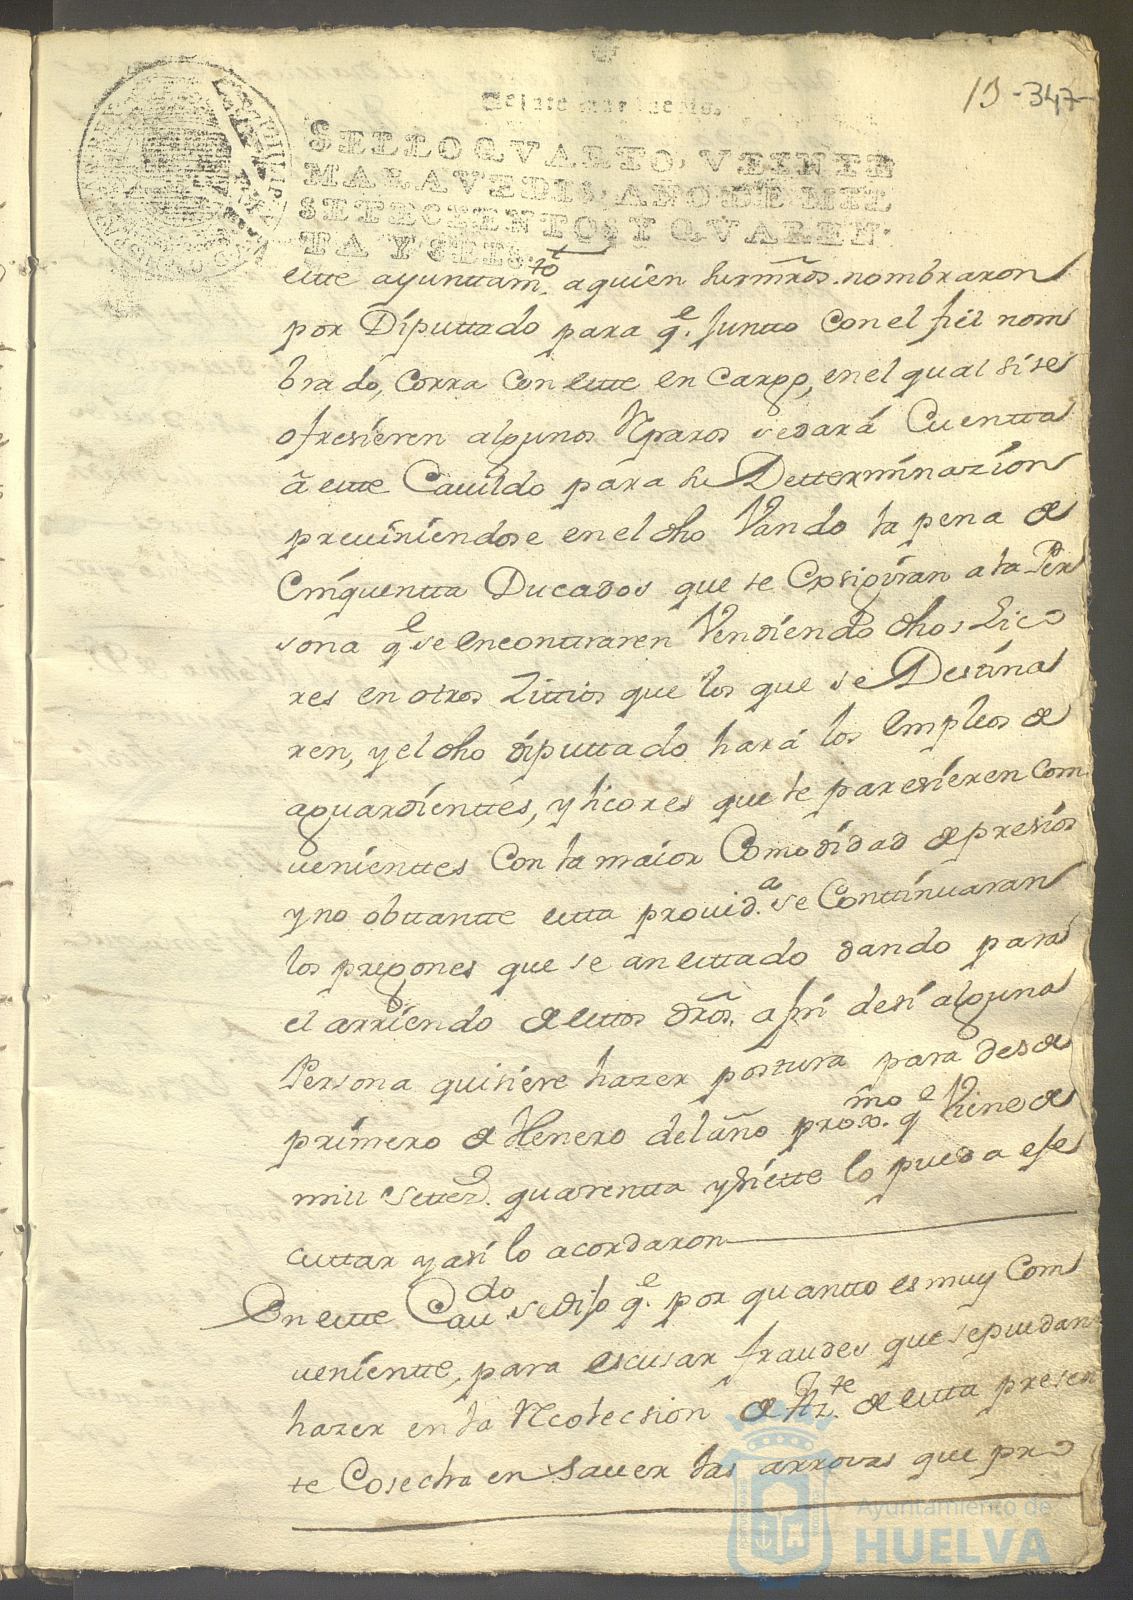 13 -347-
Veinte maravedis.
SELLO QVARTO, VEINTE
MARAVEDIS, AÑO DE MIL
SETECIENTOS Y QVAREN-
TA Y SEIS.
este ayunttam.to a quien su mrs. nombraron
por Diputtado para q.e Juntto con el fiel nom
brado, corra con este en cargo, en el qual si se
ofresieren algunos Rparos se dará Cuentta
â este Cauildo para su Detterminazion
preuiniendose en el dho Vando la pena de
Cinquentta Ducados que se Exsigiran a la Per
sona q.e se encontraren Vendiendo dhos Lico
res en otros Sittios que los que se Destina
ren, y el dho diputtado hará los Empleos de
aguardienttes, y licores que le paresieren com
uenienttes Con la maior Comodidad de presios
y no obstantte esta prouid.a se Conttinuaran
los pregones que se an estado dando para
el arriendo de estos dros. a fin de si alguna
Persona quisiere hazer postura para desde
primero de Henero del año prox.mo q.e Viene de
mill settez.s quarentta y siette lo pueda efe
cuttar y asi lo acordaron
En este Cau.do se dijo q.e por quantto es muy Com
uenientte, para escusar fraudes que se puedan
hazer en la Rcolecsion de Az.te de esta presen
te Cosecha en Sauer las arrovas que pro
Ayuntamiento de
HUELVA